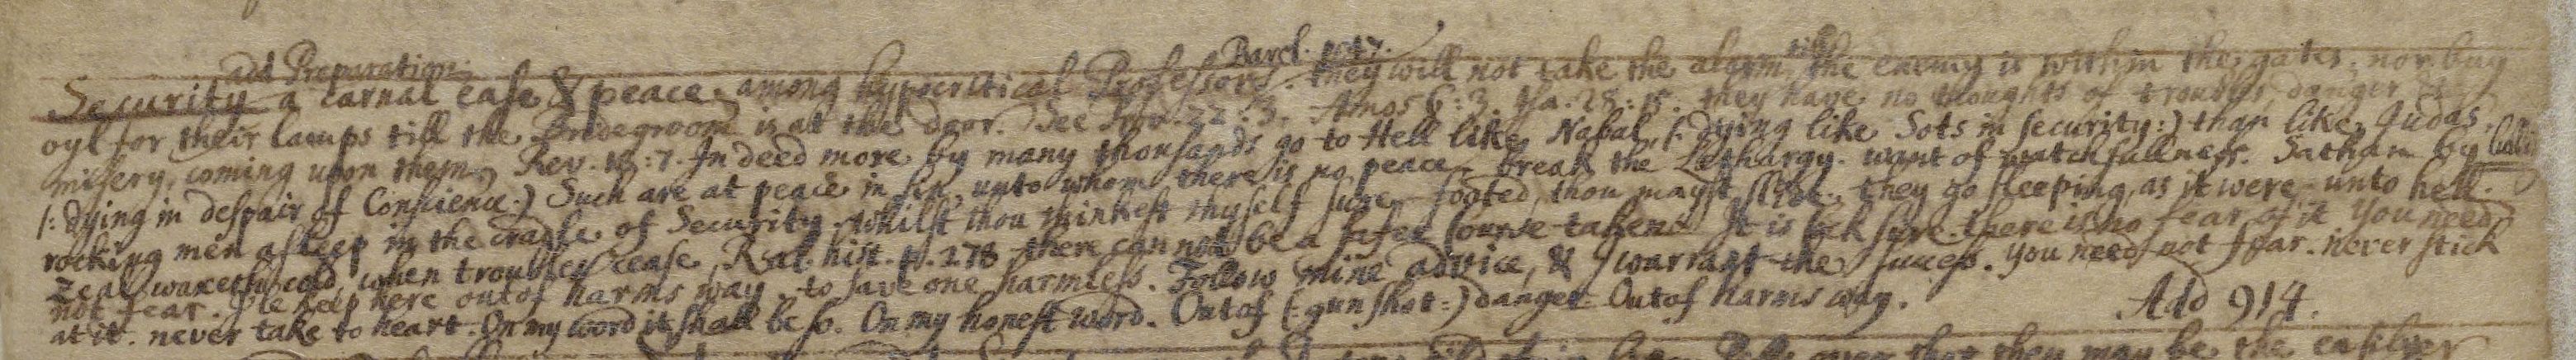 add Preparation. Barcl. 1047.
Security a carnal ease & peace, among hypocritical Professors. they will not take the alarm till the enemy is within the gates, nor buy
oyl for their lamps till the Bridegroom is at the door. See Prov. 22:3. Amos 6:3. Isa. 28:15. they have no thoughts of trouble, danger &
misery, coming upon them, Rev. 18:7. Indeed more by many thousands go to Hell like Nabal, (: dying like Sots in security:) than like Judas,
(: dying in despair of Conscience:) Such are at peace in sin, unto whom there is no peace. break the Lethargy. want of watchfullness. Sathan by
rocking men asleep in the cradle of Security. whilst thou thinkest thyself sure-footed, thou mayst slide. they go sleeping, as it were, unto hell.
Zeal waxeth cold, when troubles cease, hist. p. 278 there cannot be a safer Course taken. It is sure. there is no fear of it You need
not fear. Ile keep here out of harms way. to save one harmless. Follow mine advice, & I warrant the success. you need not fear. never stick
at it. never take to heart. On my word it shall be so. On my honest word. Out of (: gunshot:) danger. Out of harms way. Add 914.
that they may be the